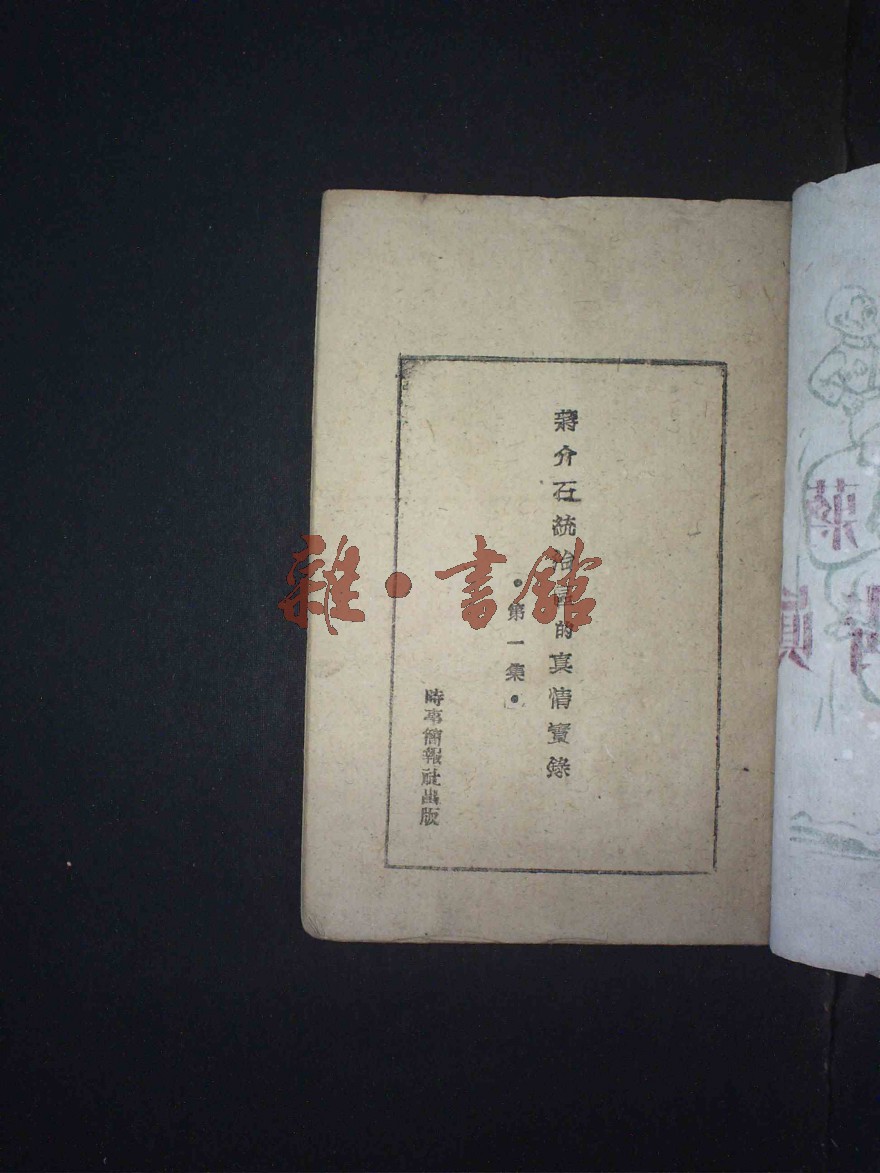 蔣介石統治區的真情實錄
•第一集•
時事簡報社出版
雜•書館